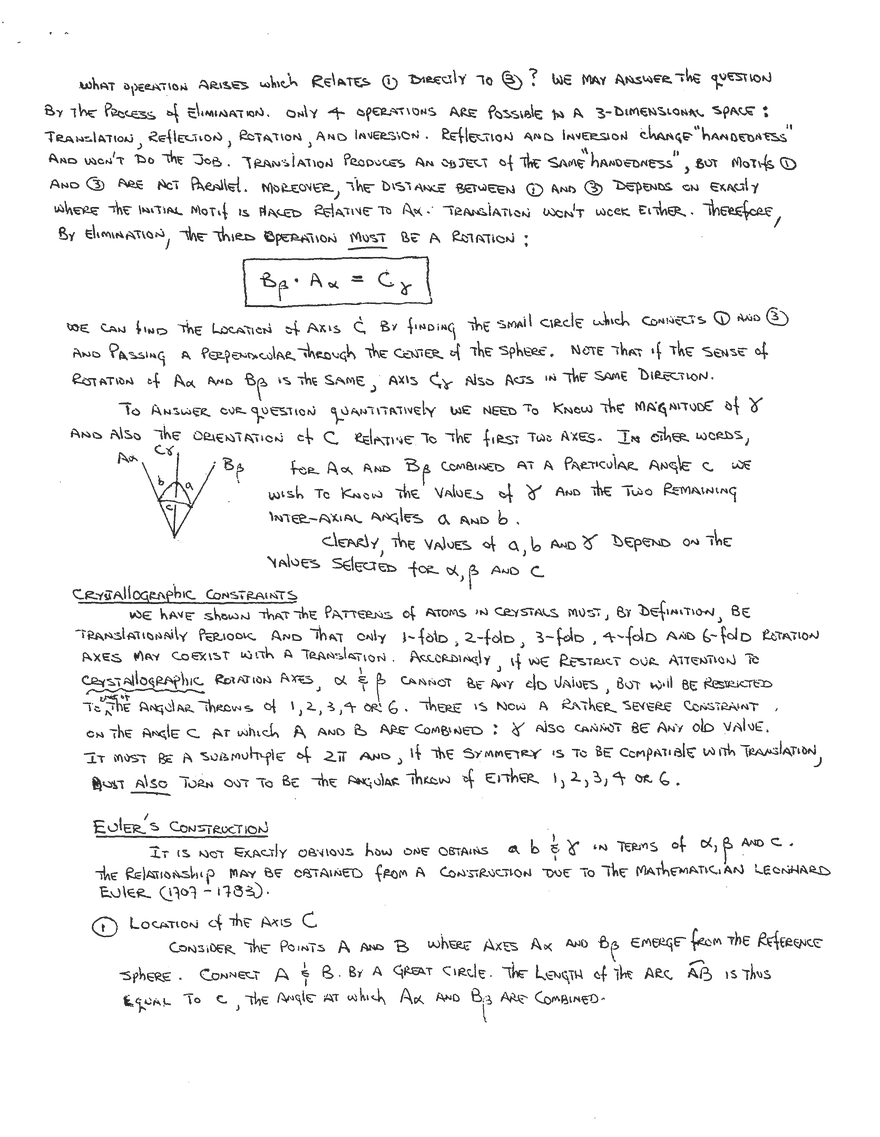 WHAT OPERATION ARISES WHICH RELATES ① DIRECTLY TO ③? WE MAY ANSWER THE QUESTION
BY THE PROCESS OF ELIMINATION. ONLY 4 OPERATIONS ARE POSSIBLE IN A 3-DIMENSIONAL SPACE:
TRANSLATION, REFLECTION, ROTATION, AND INVERSION. REFLECTION AND INVERSION CHANGE "HANDEDNESS"
AND WON'T DO THE JOB. TRANSLATION PRODUCES AN OBJECT OF THE SAME "HANDEDNESS", BUT MOTIFS ①
AND ③ ARE NOT PARALLEL. MOREOVER, THE DISTANCE BETWEEN ① AND ③ DEPENDS ON EXACTLY
WHERE THE INITIAL MOTIF IS PLACED RELATIVE TO Aα. TRANSLATION WON'T WORK EITHER. THEREFORE,
BY ELIMINATION, THE THIRD OPERATION MUST BE A ROTATION:
Bβ · Aα = Cγ
WE CAN FIND THE LOCATION OF AXIS C BY FINDING THE SMALL CIRCLE WHICH CONNECTS ① AND ③
AND PASSING A PERPENDICULAR THROUGH THE CENTER OF THE SPHERE. NOTE THAT IF THE SENSE OF
ROTATION OF Aα AND Bβ IS THE SAME, AXIS Cγ ALSO ACTS IN THE SAME DIRECTION.
TO ANSWER OUR QUESTION QUANTITATIVELY WE NEED TO KNOW THE MAGNITUDE OF γ
AND ALSO THE ORIENTATION OF C RELATIVE TO THE FIRST TWO AXES. IN OTHER WORDS,
Aα Cγ Bβ
b a
c
FOR Aα AND Bβ COMBINED AT A PARTICULAR ANGLE c WE
WISH TO KNOW THE VALUES OF γ AND THE TWO REMAINING
INTER-AXIAL ANGLES a AND b.
CLEARLY, THE VALUES OF a, b AND γ DEPEND ON THE
VALUES SELECTED FOR α, β AND C
CRYSTALLOGRAPHIC CONSTRAINTS
WE HAVE SHOWN THAT THE PATTERNS OF ATOMS IN CRYSTALS MUST, BY DEFINITION, BE
TRANSLATIONALLY PERIODIC AND THAT ONLY 1-FOLD, 2-FOLD, 3-FOLD, 4-FOLD AND 6-FOLD ROTATION
AXES MAY COEXIST WITH A TRANSLATION. ACCORDINGLY, IF WE RESTRICT OUR ATTENTION TO
CRYSTALLOGRAPHIC ROTATION AXES, α & β CANNOT BE ANY OLD VALUES, BUT WILL BE RESTRICTED
TO ONE OF THE ANGULAR THROWS OF 1, 2, 3, 4 OR 6. THERE IS NOW A RATHER SEVERE CONSTRAINT
ON THE ANGLE C AT WHICH A AND B ARE COMBINED: γ ALSO CANNOT BE ANY OLD VALUE.
IT MUST BE A SUBMULTIPLE OF 2π AND, IF THE SYMMETRY IS TO BE COMPATIBLE WITH TRANSLATION,
MUST ALSO TURN OUT TO BE THE ANGULAR THROW OF EITHER 1, 2, 3, 4 OR 6.
EULER'S CONSTRUCTION
IT IS NOT EXACTLY OBVIOUS HOW ONE OBTAINS a b & γ IN TERMS OF α, β AND C.
THE RELATIONSHIP MAY BE OBTAINED FROM A CONSTRUCTION DUE TO THE MATHEMATICIAN LEONHARD
EULER (1707 - 1783).
① LOCATION OF THE AXIS C
CONSIDER THE POINTS A AND B WHERE AXES Aα AND Bβ EMERGE FROM THE REFERENCE
SPHERE. CONNECT A & B. BY A GREAT CIRCLE. THE LENGTH OF THE ARC A͡B IS THUS
EQUAL TO C, THE ANGLE AT WHICH Aα AND Bβ ARE COMBINED.